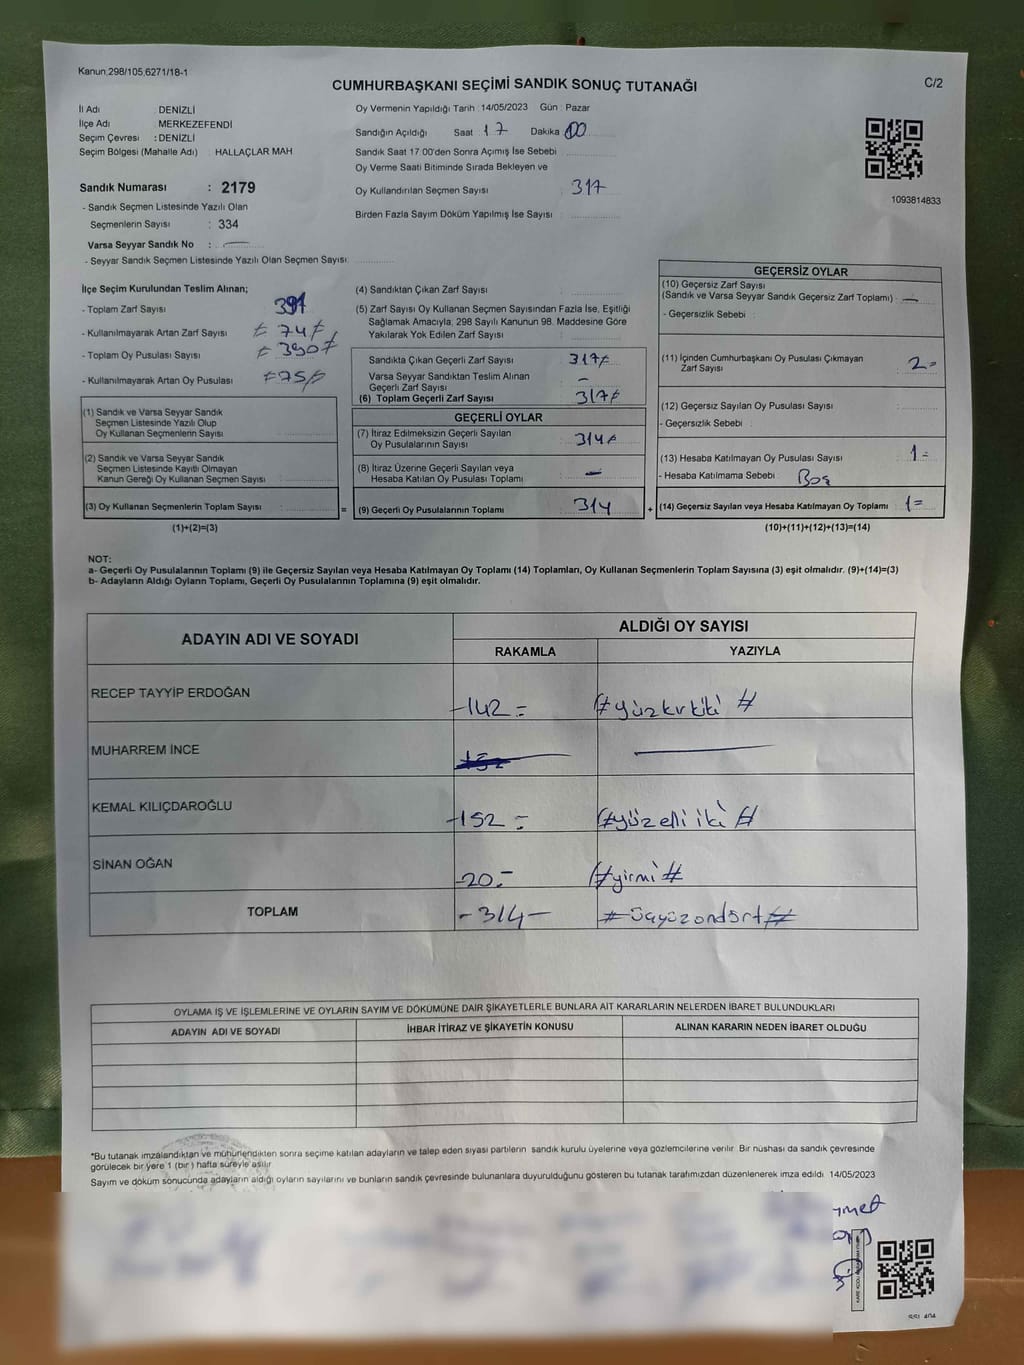 Kanun,298/105,6271/18-1
CUMHURBAŞKANI SEÇİMİ SANDIK SONUÇ TUTANAĞI
C/2
İl Adı : DENİZLİ
İlçe Adı : MERKEZEFENDİ
Seçim Çevresi : DENİZLİ
Seçim Bölgesi (Mahalle Adı) : HALLAÇLAR MAH
Sandık Numarası : 2179
- Sandık Seçmen Listesinde Yazılı Olan
Seçmenlerin Sayısı : 334
Varsa Seyyar Sandık No :
- Seyyar Sandık Seçmen Listesinde Yazılı Olan Seçmen Sayısı:
Oy Vermenin Yapıldığı Tarih : 14/05/2023 Gün : Pazar
Sandığın Açıldığı Saat 17 Dakika 00
Sandık Saat 17 00'den Sonra Açımış İse Sebebi
Oy Verme Saati Bitiminde Sırada Bekleyen ve
Oy Kullandırılan Seçmen Sayısı : 317
Birden Fazla Sayım Döküm Yapılmış İse Sayısı :
1093814833
İlçe Seçim Kurulundan Teslim Alınan;
- Toplam Zarf Sayısı 391
- Kullanılmayarak Artan Zarf Sayısı 74
- Toplam Oy Pusulası Sayısı 390
- Kullanılmayarak Artan Oy Pusulası 75
(1) Sandık ve Varsa Seyyar Sandık
Seçmen Listesinde Yazılı Olup
Oy Kullanan Seçmenlerin Sayısı
(2) Sandık ve Varsa Seyyar Sandık
Seçmen Listesinde Kayıtlı Olmayan
Kanun Gereği Oy Kullanan Seçmen Sayısı
(3) Oy Kullanan Seçmenlerin Toplam Sayısı : =
(1)+(2)=(3)
(4) Sandıktan Çıkan Zarf Sayısı :
(5) Zarf Sayısı Oy Kullanan Seçmen Sayısından Fazla İse, Eşitliği
Sağlamak Amacıyla, 298 Sayılı Kanunun 98. Maddesine Göre
Yakılarak Yok Edilen Zarf Sayısı :
Sandıkta Çıkan Geçerli Zarf Sayısı : 317
Varsa Seyyar Sandıktan Teslim Alınan
Geçerli Zarf Sayısı : -
(6) Toplam Geçerli Zarf Sayısı : 317
GEÇERLİ OYLAR
(7) İtiraz Edilmeksizin Geçerli Sayılan
Oy Pusulalarının Sayısı : 314
(8) İtiraz Üzerine Geçerli Sayılan veya
Hesaba Katılan Oy Pusulası Toplamı : -
(9) Geçerli Oy Pusulalarının Toplamı : 314 +
GEÇERSİZ OYLAR
(10) Geçersiz Zarf Sayısı
(Sandık ve Varsa Seyyar Sandık Geçersiz Zarf Toplamı) : —
- Geçersizlik Sebebi :
(11) İçinden Cumhurbaşkanı Oy Pusulası Çıkmayan
Zarf Sayısı : 2=
(12) Geçersiz Sayılan Oy Pusulası Sayısı :
- Geçersizlik Sebebi :
(13) Hesaba Katılmayan Oy Pusulası Sayısı : 1=
- Hesaba Katılmama Sebebi : Boş
(14) Geçersiz Sayılan veya Hesaba Katılmayan Oy Toplamı : 1=
(10)+(11)+(12)+(13)=(14)
NOT:
a- Geçerli Oy Pusulalarının Toplamı (9) ile Geçersiz Sayılan veya Hesaba Katılmayan Oy Toplamı (14) Toplamları, Oy Kullanan Seçmenlerin Toplam Sayısına (3) eşit olmalıdır. (9)+(14)=(3)
b- Adayların Aldığı Oyların Toplamı, Geçerli Oy Pusulalarının Toplamına (9) eşit olmalıdır.
ADAYIN ADI VE SOYADI
ALDIĞI OY SAYISI
RAKAMLA YAZIYLA
RECEP TAYYİP ERDOĞAN -142= #yüzkırkiki#
MUHARREM İNCE
KEMAL KILIÇDAROĞLU -152= #yüzelli iki#
SİNAN OĞAN -20.- #yirmi#
TOPLAM -314- #üçyüzondört#
OYLAMA İŞ VE İŞLEMLERİNE VE OYLARIN SAYIM VE DÖKÜMÜNE DAİR ŞİKAYETLERLE BUNLARA AİT KARARLARIN NELERDEN İBARET BULUNDUKLARI
ADAYIN ADI VE SOYADI İHBAR İTİRAZ VE ŞİKAYETİN KONUSU ALINAN KARARIN NEDEN İBARET OLDUĞU
*Bu tutanak imzalandıktan ve mühürlendikten sonra seçime katılan adayların ve talep eden siyası partilerin sandık kurulu üyelerine veya gözlemcilerine verilir. Bir nüshası da sandık çevresinde
görülecek bir yere 1 (bir) hafta süreyle asılır
Sayım ve döküm sonucunda adayların aldığı oyların sayılarını ve bunların sandık çevresinde bulunanlara duyurulduğunu gösteren bu tutanak tarafımızdan düzenlenerek imza edildi 14/05/2023